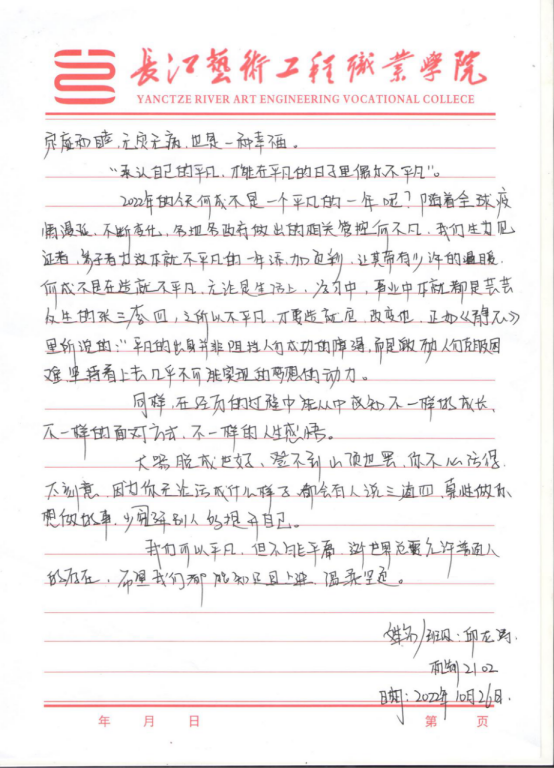 長江藝術工程職業學院
YANCTZE RIVER ART ENGINEERING VOCATIONAL COLLECE
家庭和睦,无灾无病,也是一种幸福。
“承认自己的平凡,才能在平凡的日子里偶尔不平凡”。
2022年的今天何尝不是一个平凡的一年呢?随着全球疫
情漫延,不断变化,各地各政府做出的相关管控何不凡,我们生为见
证者,为这本就不平凡的一年添加色彩,让其带有少许的温暖,
何尝不是在造就不平凡,无论是生活上,学习中,事业中本就都是芸芸
众生的张三李四,之所以不平凡,才要造就它,改变它,正如《静心》
里所说的:“平凡的出身并非阻挡人们成功的障碍,而是激励人们克服困
难,坚持看上去几乎不可能实现的梦想的动力。
同样,在经历的过程中能从中感知不一样的成长,
不一样的面对方式,不一样的人生感悟。
大器晚成也好,登不到山顶也罢,你不必讨得,
不刻意,因为你无论活成什么样子,都会有人说三道四,真性做你
想做的事,少因别人的提升自己。
我们可以平凡,但不能平庸,这世界总要允许普通人
的存在,希望我们都能知足且上进,温柔坚定。
姓名/班级:邱龙涛.
机制2102
日期:2022年10月26日.
年 月 日 第 页